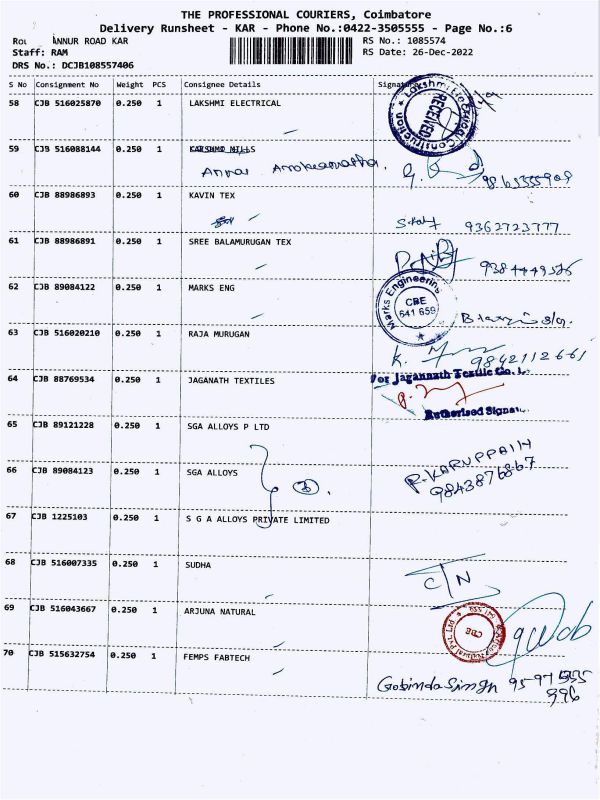 THE PROFESSIONAL COURIERS, Coimbatore
Delivery Runsheet - KAR - Phone No.:0422-3505555 - Page No.:6
ANNUR ROAD KAR RS No.: 1085574
Staff: RAM RS Date: 26-Dec-2022
DRS No.: DCJB108557406
S No Consignment No Weight PCS Consignee Details Signature
58 CJB 516025870 0.250 1 LAKSHMI ELECTRICAL
Lakshmi Electrical Construction
RECEIVED
59 CJB 516088144 0.250 1 MILLS
60 CJB 88986893 0.250 1 KAVIN TEX
9362723777
61 CJB 88986891 0.250 1 SREE BALAMURUGAN TEX
62 CJB 89084122 0.250 1 MARKS ENG
Marks Engineering
CBE
641 659
63 CJB 516020210 0.250 1 RAJA MURUGAN
9842112661
64 CJB 88769534 0.250 1 JAGANATH TEXTILES
For Jagannath Textile Co.
Authorised Signat
65 CJB 89121228 0.250 1 SGA ALLOYS P LTD
66 CJB 89084123 0.250 1 SGA ALLOYS
R. KARUPPAIH
9843876867
67 CJB 1225103 0.250 1 S G A ALLOYS PRIVATE LIMITED
68 CJB 516007335 0.250 1 SUDHA
C/N
69 CJB 516043667 0.250 1 ARJUNA NATURAL
CBE
70 CJB 515632754 0.250 1 FEMPS FABTECH
Gobinda Singh 95-97 555
996